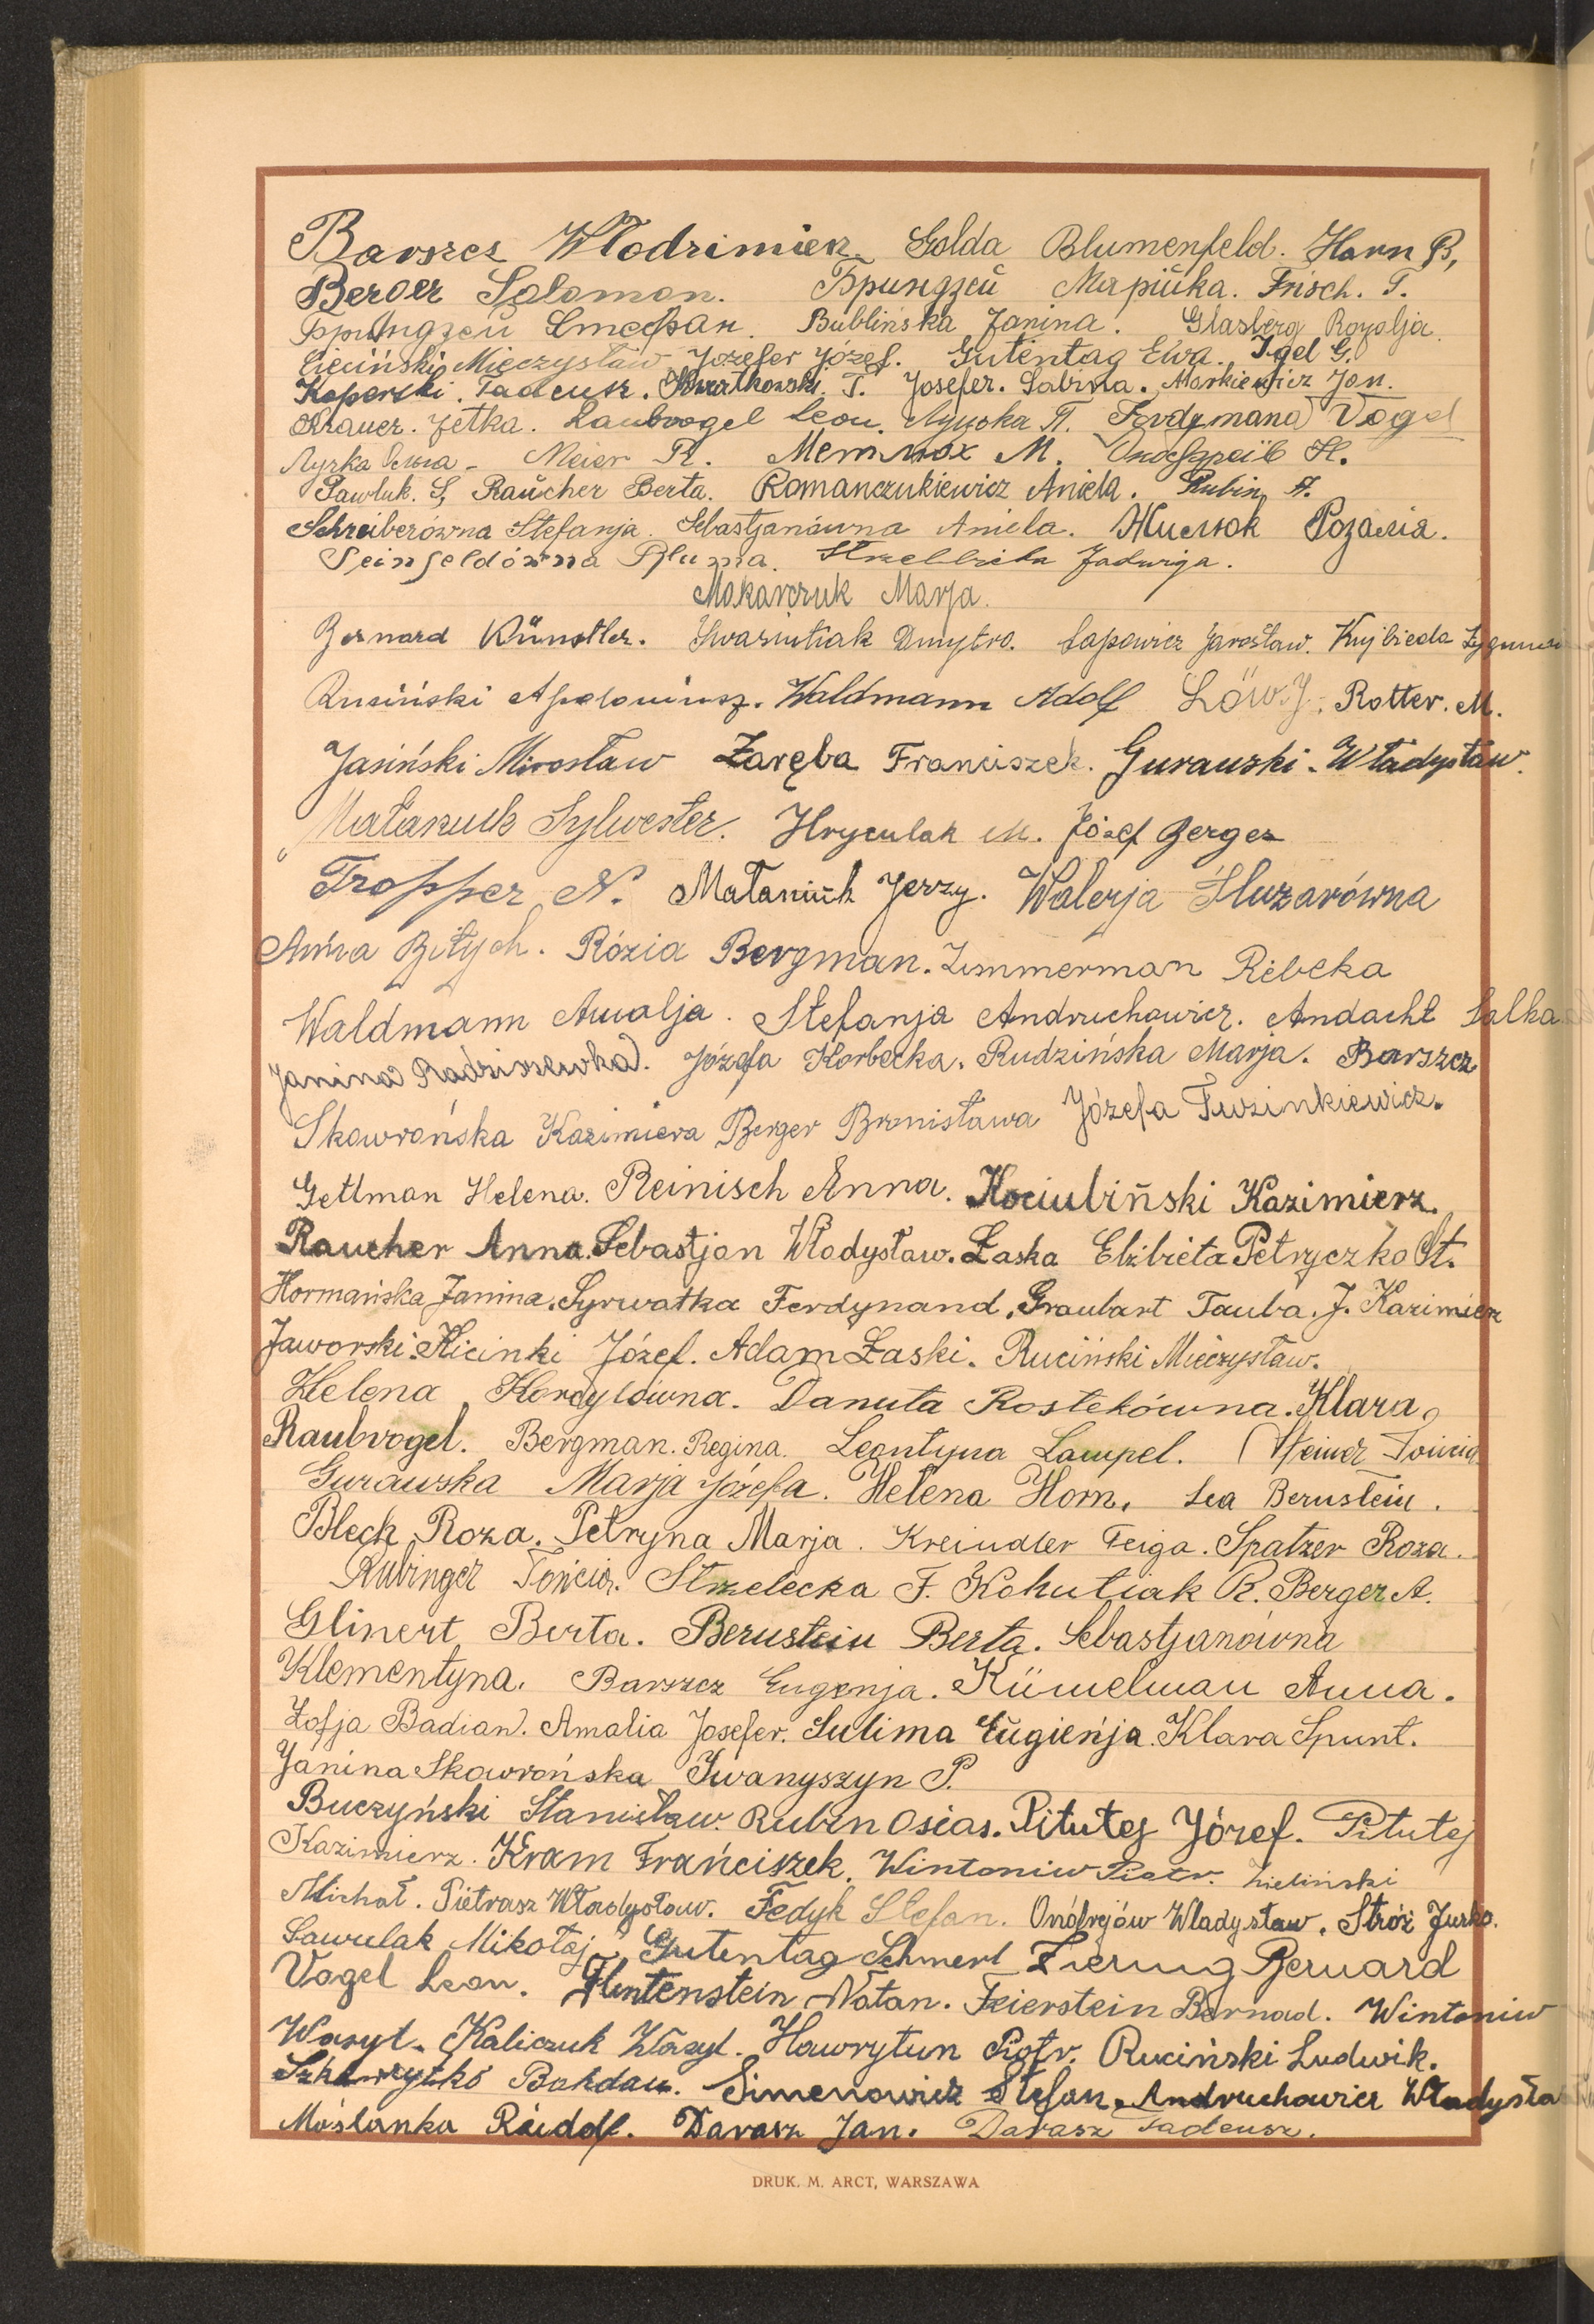 Barszcz Włodzimierz. Golda Blumenfeld. Horn B,
Berger Salomon. Бриндзей Марійка. Frisch. T.
Бриндзей Стефан. Bublińska Janina. Glasberg Rozalja.
Cieciński Mieczysław Jozefer Józef. Gutentag Ewa. Igel G.
Koperski. Tadeusz. Kwiatkowski. T. Josefer. Sabina. Markiewicz Jan.
Krauer. Jetka. Laubvogel Leon. П. Vogel
Meier R. M. Н.
Pawluk. S, Raucher Berta. Romanczukiewicz Aniela. Rubin A.
Schreiberówna Stefanja. Sebastjanówna Aniela. Жислюк Розалія.
Seinfeldówna Bluma. Strzelbicka Jadwiga.
Makarczuk Marja.
Bernard Künstler. Iwasiutiak Dmytro. Łapowicz Jarosław. Kujbieda
Rusiński Apoloniusz. Waldmann Adolf Löw. J. Rotter. M.
Jasiński Mirosław Zaręba Franciszek. Gurauski. Władysław.
Małaniuk Sylwester. Hryculak M. Józef Berger
Tropper N. Małaniuk Jerzy. Walerja Śluzarówna
Anna Biłych. Rózia Bergman. Zimmerman Rebeka
Waldmann Amalja. Stefanja Andruchowicz. Andacht Salka
Janina Radziszewka. Józefa Korbecka. Rudzińska Marja. Barszcz
Skowrońska Kazimiera Berger Bronisława Józefa Twzinkiewicz.
Gettman Helena. Reinisch Anna. Kociubiński Kazimierz.
Raucher Anna. Sebastjan Władysław. Łaska Elżbieta Petryczko St.
Hormańska Janina. Syrwatka Ferdynand. Graubart Tauba. J. Kazimierz
Jaworski. Kicinki Józef. Adam Łaski. Ruciński Mieczysław.
Helena Kordylówna. Danuta Rostekówna. Klara
Raubvogel. Bergman. Regina. Leontyna Lampel. Weiner Tońcia
Gurawska Marja Józefa. Helena Horn. Lea Bernstein.
Bleck Roza. Petryna Marja. Kreindler Feiga. Spatzer Roza.
Rubinger Tońcia. Strzelecka F. Kohutiak R. Berger A.
Glinert Berta. Bernstein Berta. Sebastjanówna
Klementyna. Barszcz Eugenja. Kümelman Anna.
Zofja Badian. Amalia Josefer. Sulima Eugienja. Klara Spunt.
Janina Skowrońska Iwanyszyn P.
Buczyński Stanisław. Rubin Osias. Pitutej Józef. Pitutej
Kazimierz. Kram Frańciszek. Wintoniw Piotr. Zieliński
Michał. Pietrasz Władysław. Fedyk Stefan. Onófrejów Władysław. Stróż Jurko.
Sawulak Mikołaj. Gutentag Schmerl Ziering Bernard
Vogel Leon. Flintenstein Natan. Feierstein Bernad. Wintoniw
Wasyl. Kaliczuk Wasyl. Hawryłun Piotr. Ruciński Ludwik.
Bohdan. Simenowicz Stefan. Andruchowicz Władysła
Moślanka Rudolf. Darasz Jan. Darasz Tadeusz.
DRUK. M. ARCT, WARSZAWA